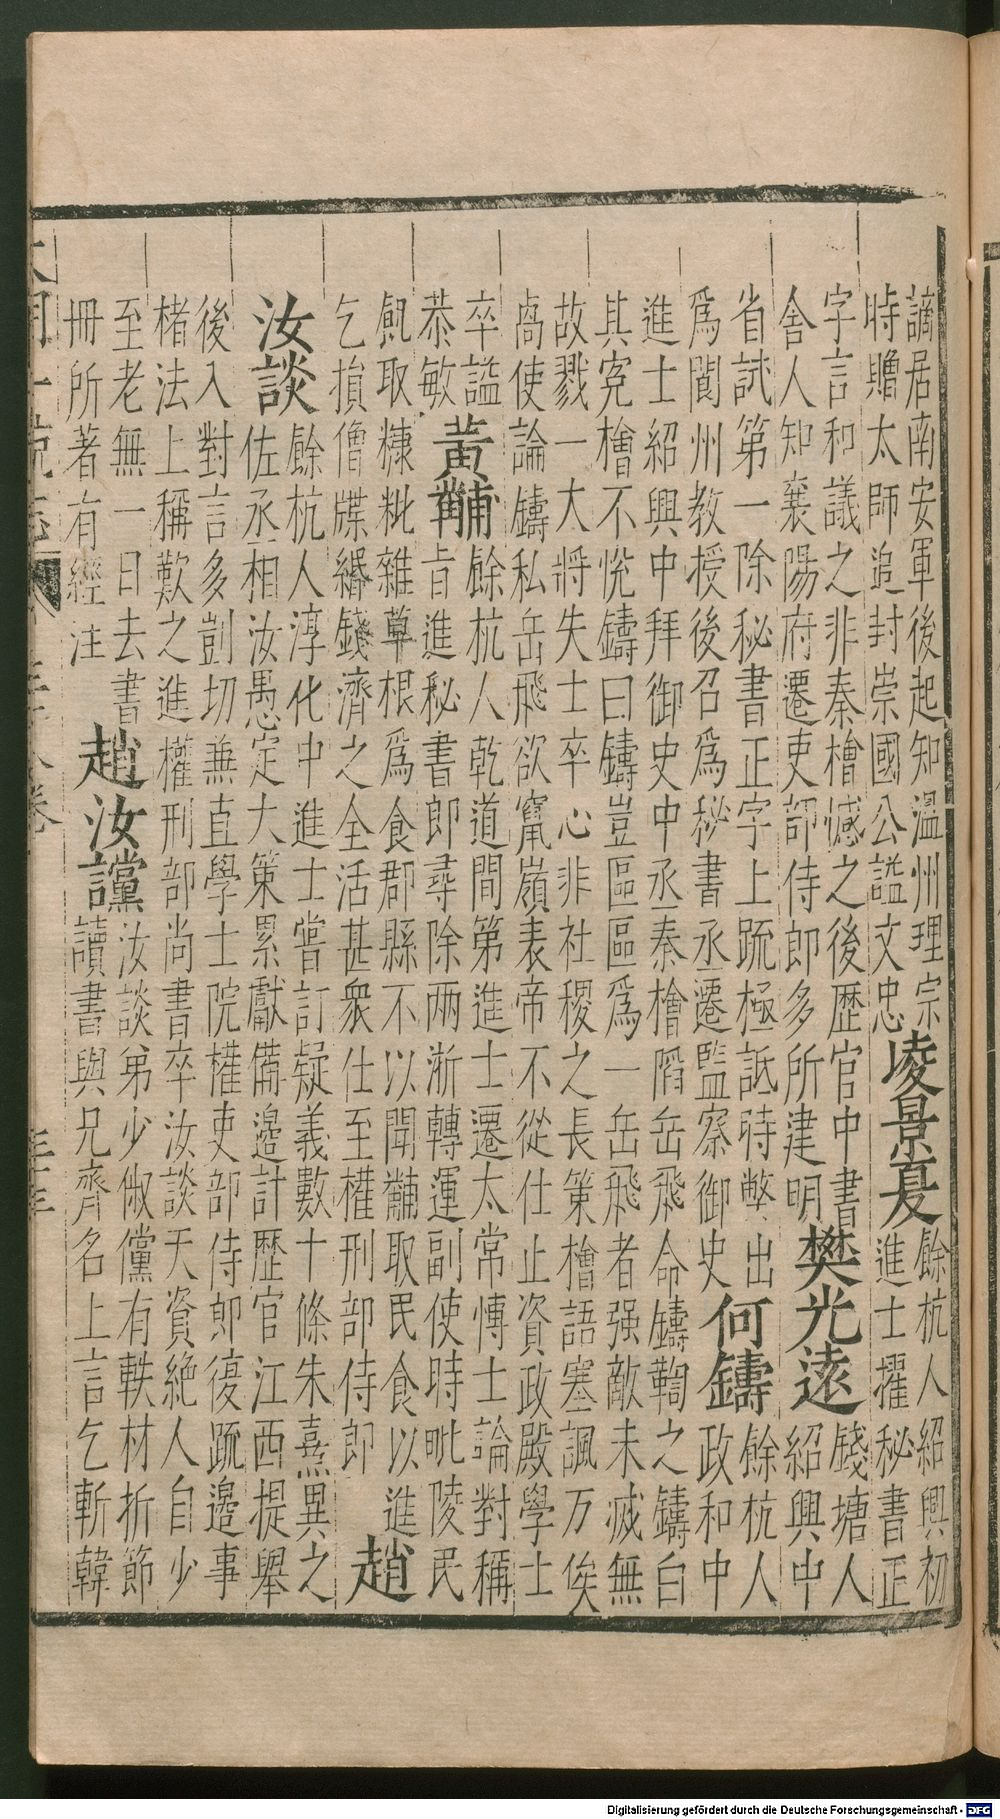 謫居南安軍後起知溫州理宗
時贈太師追封崇國公謚文忠
凌景夏
餘杭人紹興初
進士擢秘書正
字言和議之非秦檜憾之後歷官中書
舍人知襄陽府遷吏部侍郎多所建明
樊光遠
錢塘人
紹興中
省試第一除秘書正字上疏極詆時弊出
爲閬州教授後召爲秘書丞遷監察御史
何鑄
餘杭人
政和中
進士紹興中拜御史中丞秦檜䧟岳飛命鑄鞫之鑄白
其寃檜不悅鑄曰鑄豈區區爲一岳飛者强敵未滅無
故戮一大將失士卒心非社稷之長策檜語塞諷万俟
卨使論鑄私岳飛欲竄嶺表帝不從仕止資政殿學士
卒謚
恭敏
黃黼
餘杭人乾道間第進士遷太常博士論對稱
旨進秘書郎尋除兩浙轉運副使時毗陵民
飢取糠粃雜草根爲食郡縣不以聞黼取民食以進
乞損僧牒緡錢濟之全活甚衆仕至權刑部侍郎
趙
汝談
餘杭人淳化中進士嘗訂疑義數十條朱熹異之
佐丞相汝愚定大策累獻備邊計歷官江西提舉
後入對言多剴切兼直學士院權吏部侍郎復疏邊事
楮法上稱歎之進權刑部尚書卒汝談天資絶人自少
至老無一日去書
冊所著有經注
趙汝讜
汝談弟少俶儻有軼材折節
讀書與兄齊名上言乞斬韓
大明一統志
三十八卷
Digitalisierung gefördert durch die Deutsche Forschungsgemeinschaft - DFG